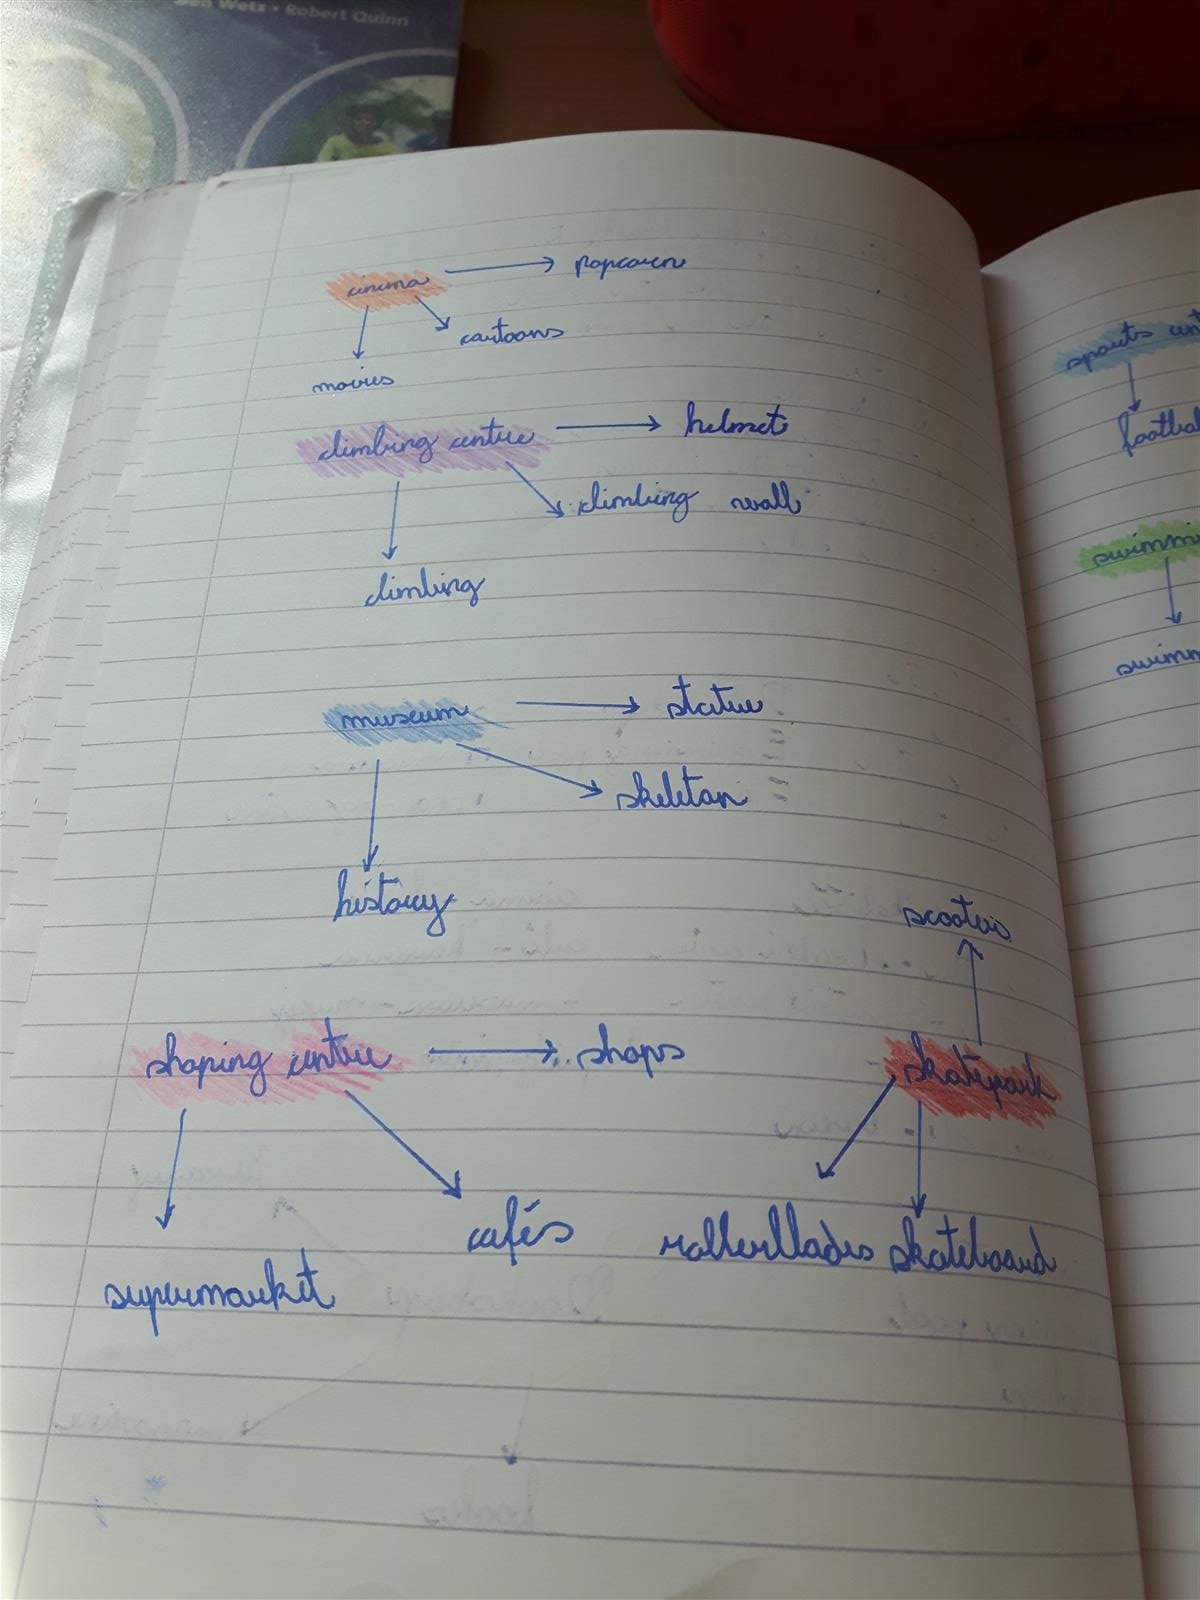 Ben Wetz • Robert Quinn
cinema
popcorn
cartoons
movies
climbing centre
helmet
climbing wall
climbing
museum
statue
skeleton
history
shoping centre
shops
cafés
supermarket
scooters
skatepark
rollerblades
skateboard
sports cent
football
swimmi
swimm